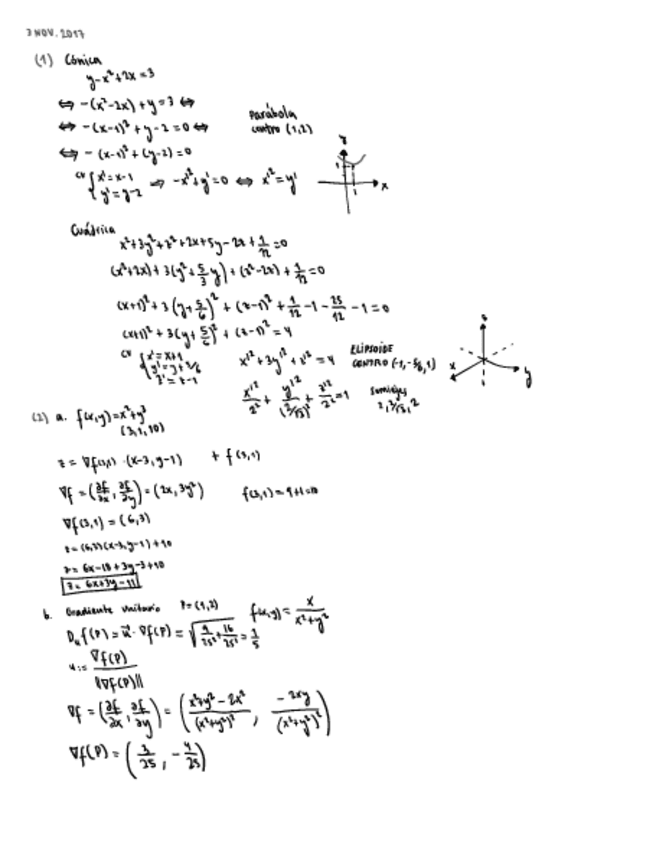 3 NOV. 2017
(1) Cónica
y-x²+2x=3
⇔ -(x²-2x)+y=3 ⇔
⇔ -(x-1)²+y-2=0 ⇔
⇔ -(x-1)²+(y-2)=0
CV { x'=x-1
y'=y-2 ⇒ -x'²+y'=0 ⇔ x'²=y'
Parábola
centro (1,2)
z
1
1
x
Cuádrica
x²+3y²+z²+2x+5y-2z+1/12=0
(x²+2x)+3(y²+5/3 y)+(z²-2z)+1/12=0
(x+1)²+3(y+5/6)²+(z-1)²+1/12-1-25/12-1=0
(x+1)²+3(y+5/6)²+(z-1)²=4
CV { x'=x+1
y'=y+5/6
z'=z-1
x'²+3y'²+z'²=4
ELIPSOIDE
CENTRO (-1,-5/6,1)
x'²/2²+y'²/(2/√3)²+z'²/2²=1
Semiejes
2,2/√3,2
z
x
y
(2) a. f(x,y)=x²+y³
(3,1,10)
z=∇f(3,1)·(x-3,y-1) + f(3,1)
∇f=(∂f/∂x,∂f/∂y)=(2x,3y²) f(3,1)=9+1=10
∇f(3,1)=(6,3)
z=(6,3)(x-3,y-1)+10
z=6x-18+3y-3+10
z=6x+3y-11
b. Gradiente unitario P=(1,2) f(x,y)=x/(x²+y²)
Dᵤf(P)=u⃗·∇f(P)=√(9/25²+16/25²)=1/5
u:=∇f(P)/||∇f(P)||
∇f=(∂f/∂x,∂f/∂y)=((x²+y²-2x²)/(x²+y²)², -2xy/(x²+y²)²)
∇f(P)=(3/25,-4/25)